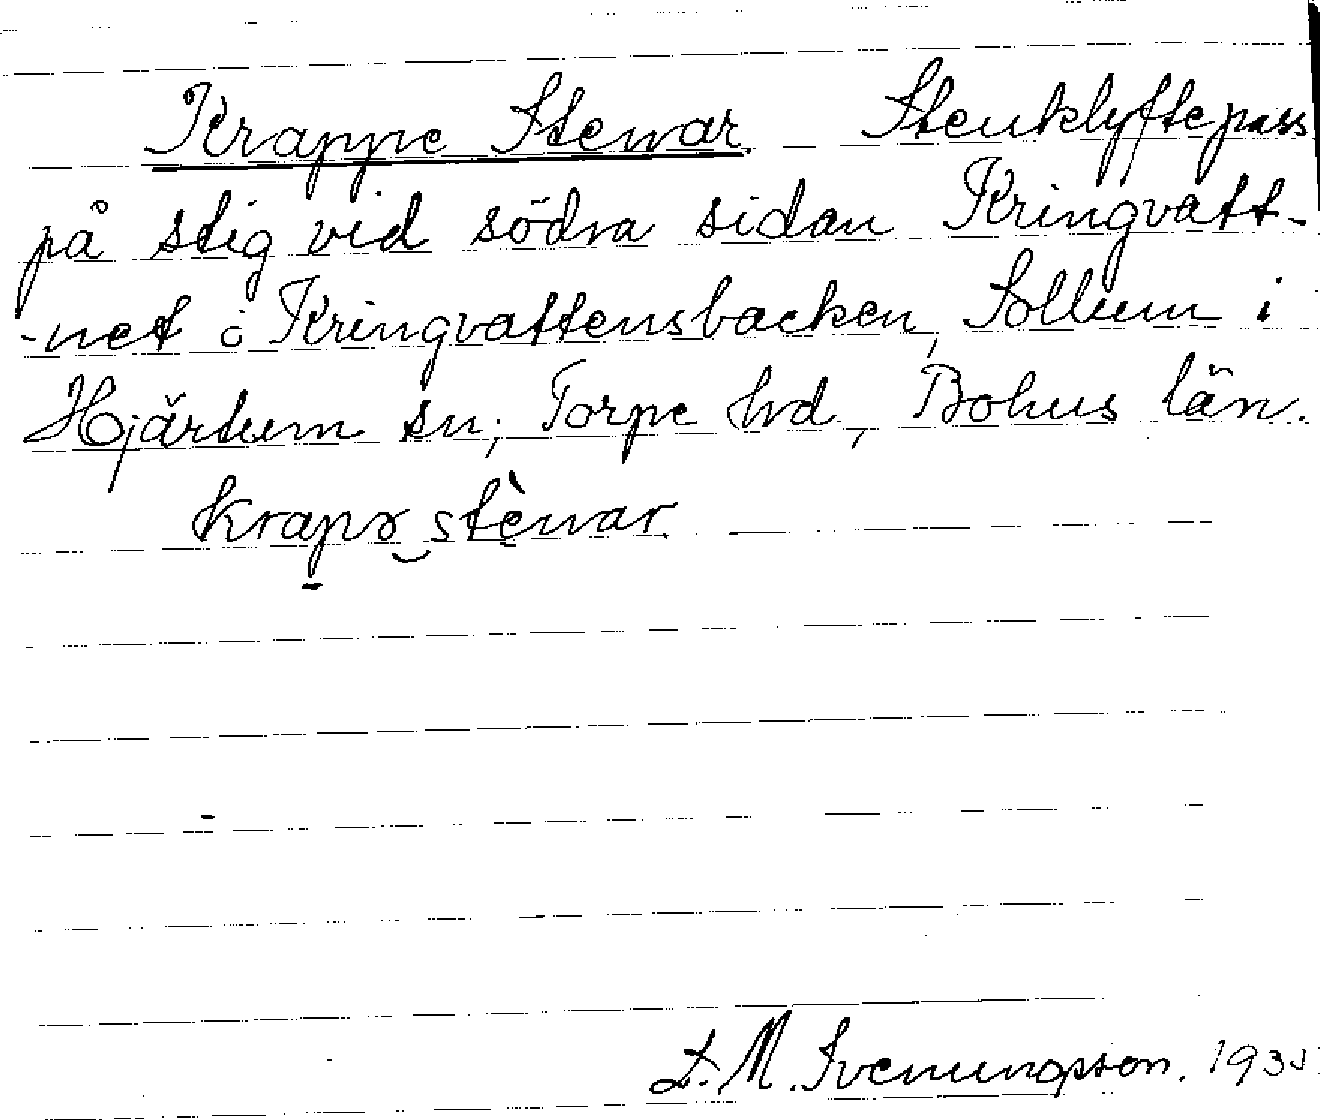 Krappe Stenar. Stenklyftepass
på stig vid södra sidan Kringvatt-
-net o Kringvattensbacken, Sollum i
Hjärtum sn; Torpe hd, Bohus län.
krapɤ stènar.
D. M. Svenungsson. 1935